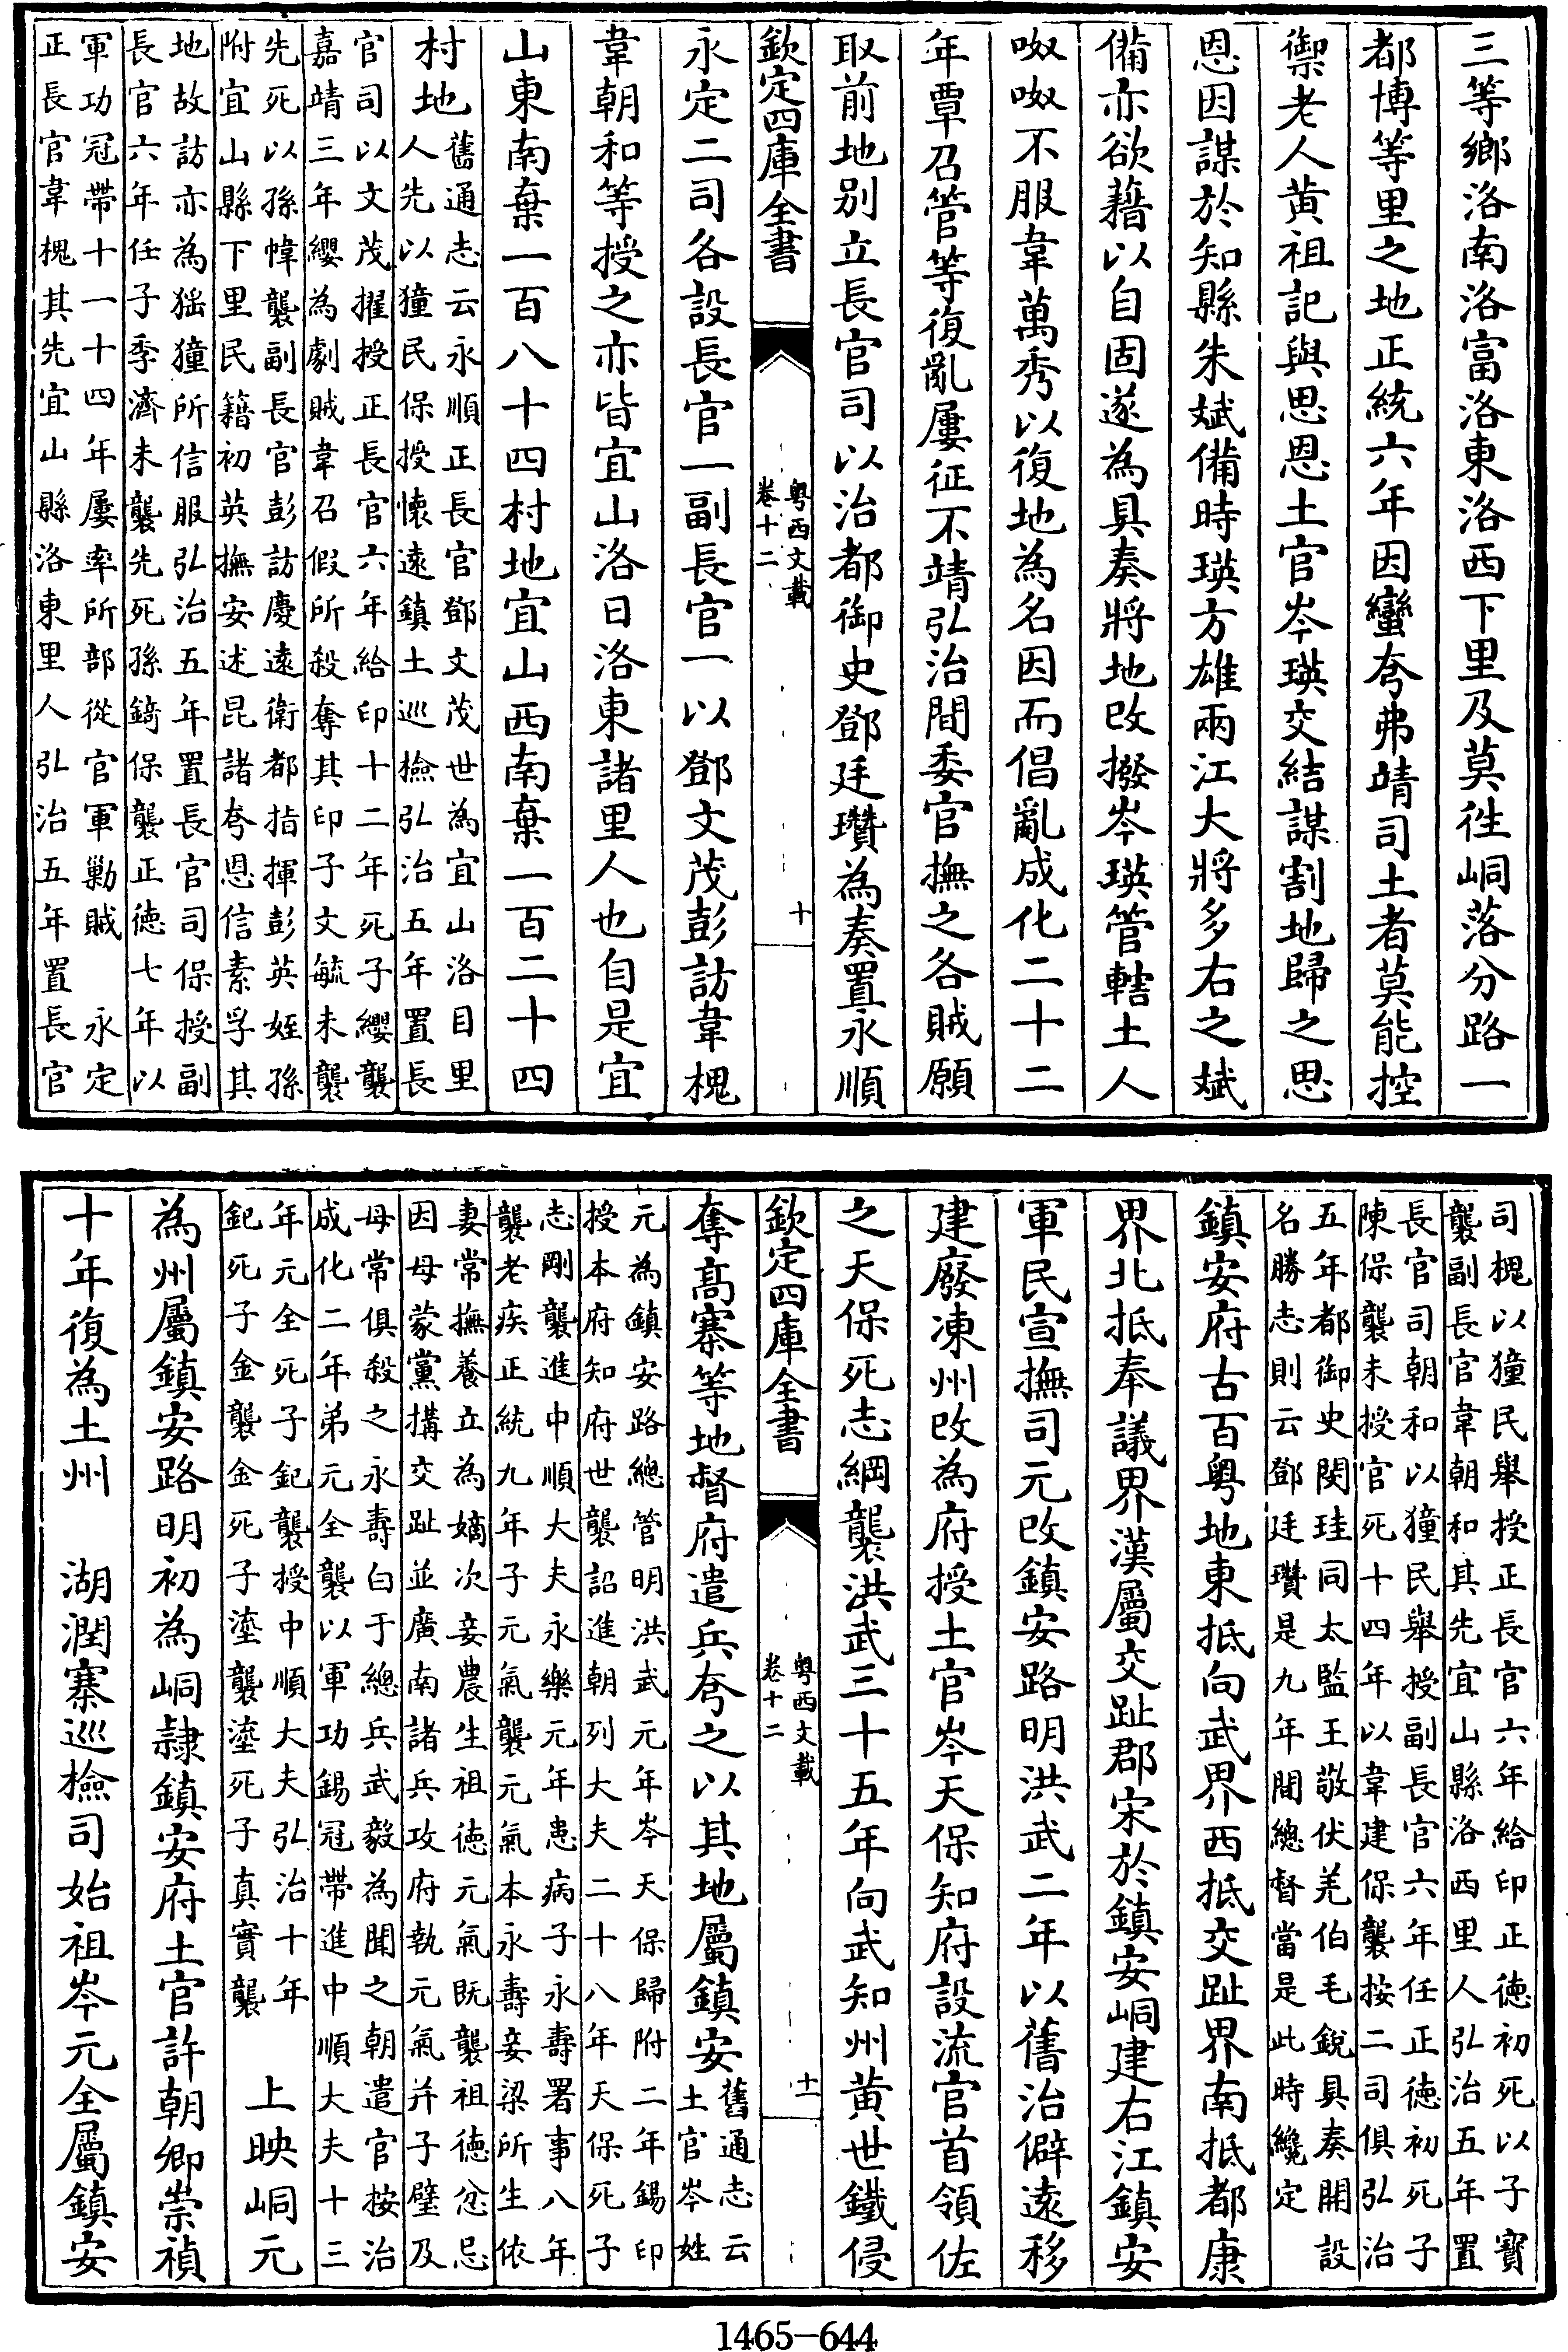 三等鄉洛南洛富洛東洛西下里及莫徃峒落分路一
都博等里之地正統六年因蠻夸弗靖司土者莫能控
禦老人黄祖記與思恩土官岑瑛交結謀割地歸之思
恩因謀於知縣朱斌備時瑛方雄兩江大將多右之斌
備亦欲藉以自固遂為具奏將地改撥岑瑛管轄土人
呶呶不服韋萬秀以復地為名因而倡亂成化二十二
年覃召管等復亂屢征不靖弘治間委官撫之各賊願
取前地别立長官司以治都御史鄧廷瓚為奏置永順
欽定四庫全書
粤西文載
卷十二
十
永定二司各設長官一副長官一以鄧文茂彭訪韋槐
韋朝和等授之亦皆宜山洛日洛東諸里人也自是宜
山東南棄一百八十四村地宜山西南棄一百二十四
村地
舊通志云永順正長官鄧文茂世為宜山洛目里
人先以獞民保授懐遠鎮土巡檢弘治五年置長
官司以文茂擢授正長官六年給印十二年死子纓襲
嘉靖三年纓為劇賊韋召假所殺奪其印子文毓未襲
先死以孫幃襲副長官彭訪慶遠衛都指揮彭英姪孫
附宜山縣下里民籍初英撫安述昆諸夸恩信素孚其
地故訪亦為猺獞所信服弘治五年置長官司保授副
長官六年任子季濟未襲先死孫錡保襲正徳七年以
軍功冠帶十一十四年屢率所部從官軍勦賊 永定
正長官韋槐其先宜山縣洛東里人弘治五年置長官
司槐以獞民舉授正長官六年給印正徳初死以子寳
襲副長官韋朝和其先宜山縣洛西里人弘治五年置
長官司朝和以獞民舉授副長官六年任正徳初死子
陳保襲未授官死十四年以韋建保襲按二司俱弘治
五年都御史閔珪同太監王敬伏羌伯毛銳具奏開設
名勝志則云鄧廷瓚是九年間總督當是此時纔定
鎮安府古百粤地東抵向武界西抵交趾界南抵都康
界北抵奉議界漢屬交趾郡宋於鎮安峒建右江鎮安
軍民宣撫司元改鎮安路明洪武二年以舊治僻逺移
建廢凍州改為府授土官岑天保知府設流官首領佐
之天保死志綱襲洪武三十五年向武知州黄世鐵侵
欽定四庫全書
粤西文載
卷十二
十一
奪高寨等地督府遣兵夸之以其地屬鎮安
舊通志云
土官岑姓
元為鎮安路總管明洪武元年岑天保歸附二年錫印
授本府知府世襲詔進朝列大夫二十八年天保死子
志剛襲進中順大夫永樂元年患病子永壽署事八年
襲老疾正統九年子元氣襲元氣本永壽妾梁所生依
妻常撫養立為嫡次妾農生祖徳元氣既襲祖徳忿忌
因母蒙黨搆交趾並廣南諸兵攻府執元氣并子璧及
母常俱殺之永壽白于總兵武毅為聞之朝遣官按治
成化二年弟元全襲以軍功錫冠帶進中順大夫十三
年元全死子䤲襲授中順大夫弘治十年
䤲死子金襲金死子𡏘襲𡏘死子真寳襲
上映峒元
為州屬鎮安路明初為峒隷鎮安府土官許朝卿崇禎
十年復為土州 湖潤寨巡檢司始祖岑元全屬鎮安
1465-644